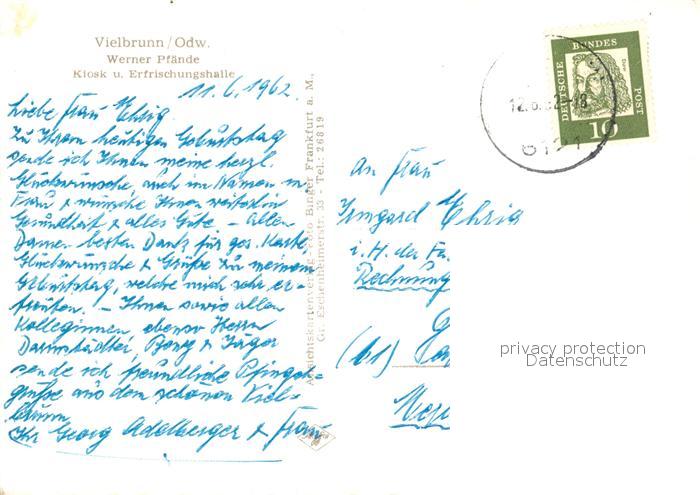 Vielbrunn/Odw.
Werner Pfände
Kiosk u. Erfrischungshalle
11.6.1962.
Liebe Frau Ehrig.
Zu Ihrem heutigen Geburtstag
sende ich Ihnen meine herzl.
Glückwünsche, auch im Namen m.
Frau & wünsche Ihnen weiterhin
Gesundheit & alles Gute – Allen
Damen besten Dank für ges. Karte,
Glückwünsche & Grüße zu meinem
Geburtstag, welche mich sehr er-
freuten. – Ihnen sowie allen
Kolleginnen, ebenso Herrn
Darmstädter, & Jäger
sende ich freundliche Pfingst-
grüße aus dem schönen Viel-
brunn
Ihr Georg Adelberger & Frau
Ansichtskartenverlag Foto Binger Frankfurt a. M.,
Gr. Eschenheimerstr. 33 - Tel.: 26819
DEUTSCHE
BUNDES
POST
Dürer
10
12.6.62-18
6121
An Frau
Irmgard Ehrig
i. H. der Fa.
Rechnung
(61)
privacy protection
Datenschutz